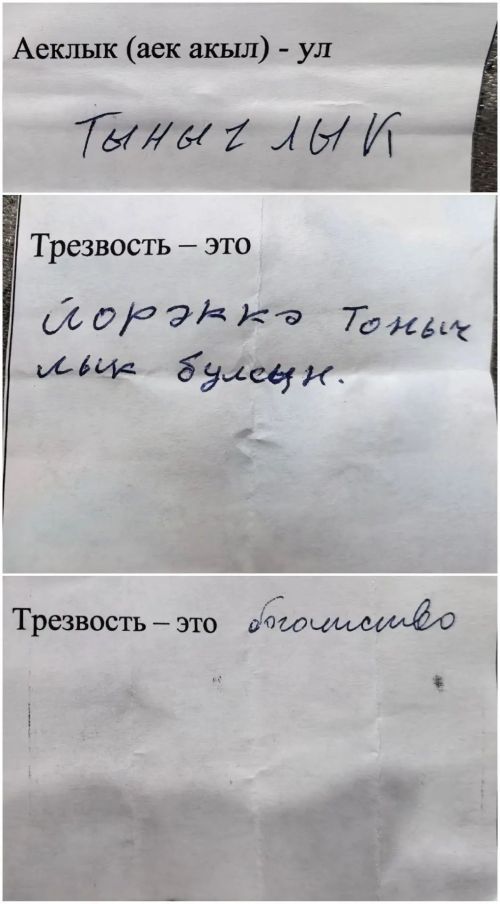 Аеклык (аек акыл) - ул
тынычлык
Трезвость – это
йорәккә тоныч
лык булсын.
Трезвость – это богатство